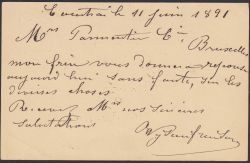 Courtrai le 11 juin 1891
Mrs Parmentier Cie, Bruxelles
mon frère vous donnera reponse
aujourd'hui sans faute, sur les
diverses choses
Recevez Mrs nos sincères
salutations